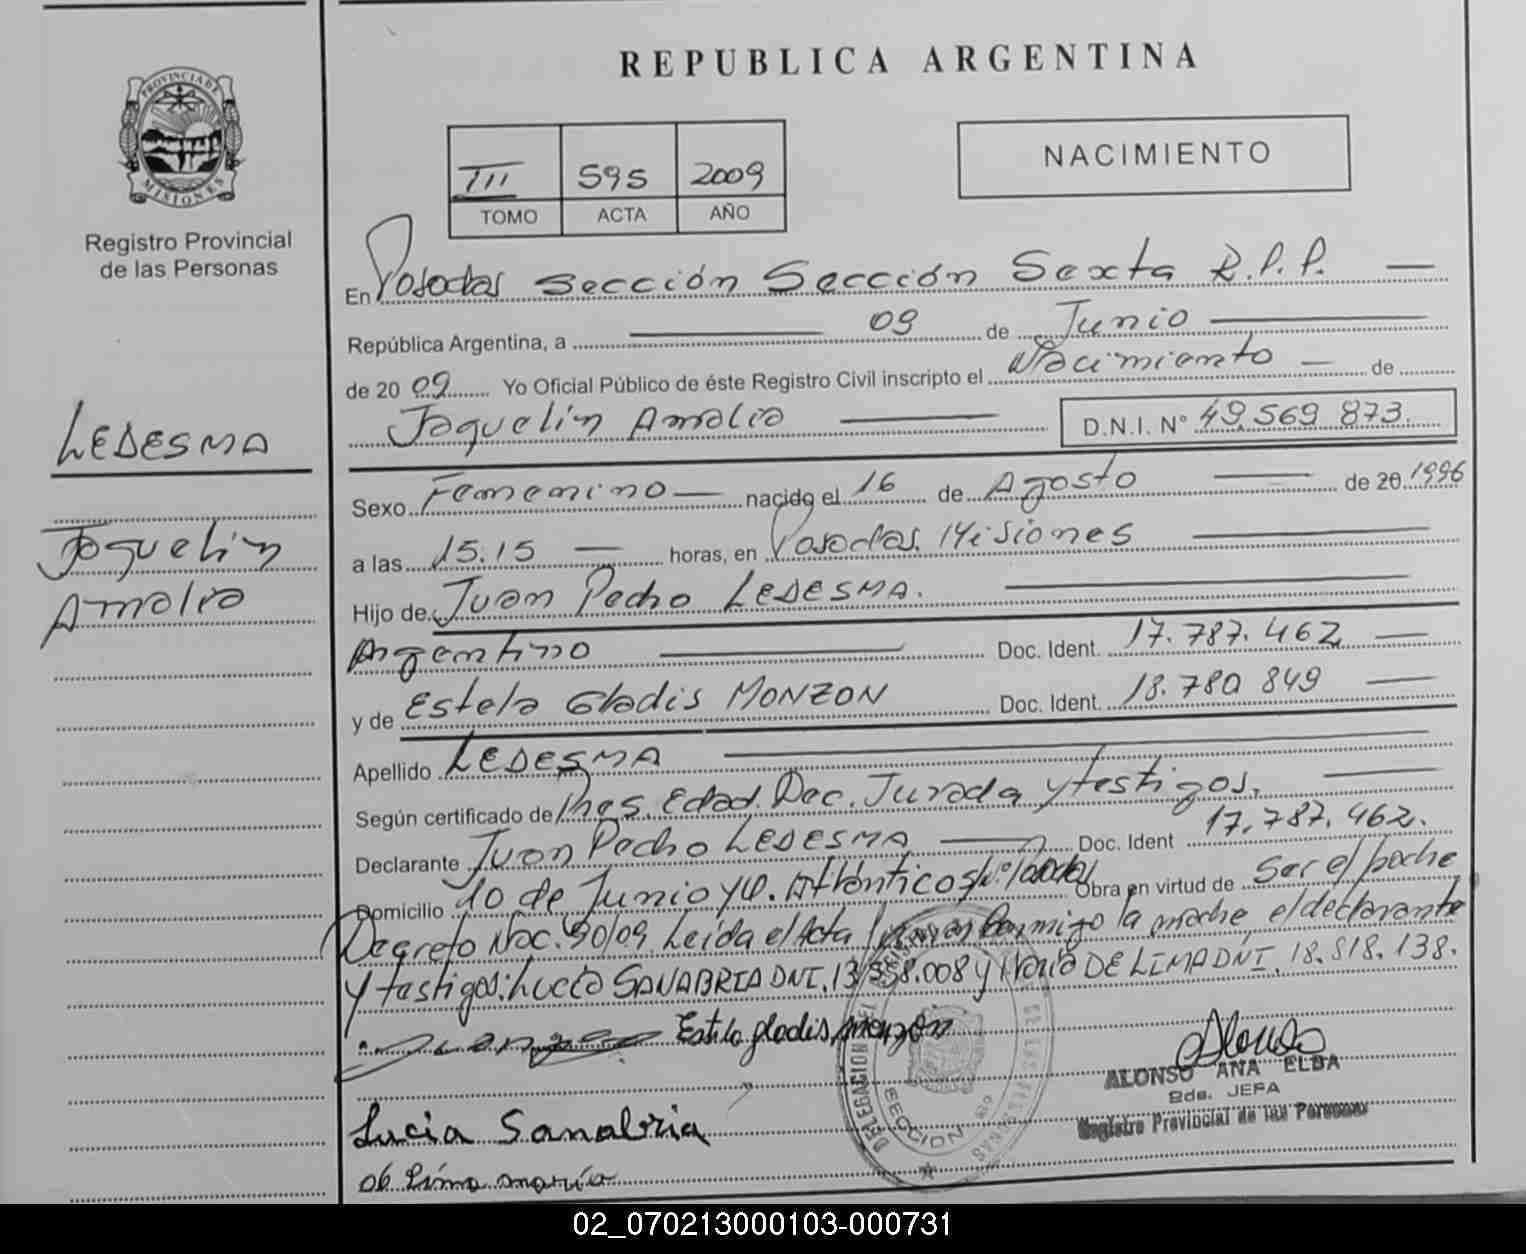 PROVINCIA DE
MISIONES
Registro Provincial
de las Personas
LEDESMA
Jaquelin
Amalia
REPUBLICA ARGENTINA
III 595 2009
TOMO ACTA AÑO
NACIMIENTO
En Posadas Sección Sección Sexta R.P.P.
República Argentina, a 09 de Junio
de 20 09 Yo Oficial Público de éste Registro Civil inscripto el Nacimiento de
Jaquelin Amalia D.N.I. N° 49.569 873.
Sexo Femenino nacido el 16 de Agosto de 20 1996
a las 15.15 horas, en Posadas. Misiones
Hijo de Juan Pedro LEDESMA.
Argentino Doc. Ident. 17.787.462
y de Estela Gladis MONZON Doc. Ident. 18.780 849
Apellido LEDESMA
Según certificado de Pres. Edad. Dec. Jurada y testigos.
Declarante Juan Pedro LEDESMA Doc. Ident 17.787.462.
Domicilio 10 de Junio y Atlántico S/N° Obra en virtud de Ser el padre
Decreto Nac. 90/09. Leída el Acta firman conmigo la madre, el declarante
y testigos: Lucía SANABRIA DNI. 13.358.008 y María DE LIMA DNI. 18.818.138.
Estela gladis monzon
ALONSO ANA ELBA
2da. JEFA
Registro Provincial de las Personas
DELEGACION DEL REGISTRO
SECCION 6°
Lucia Sanabria
de Lima maría
02_070213000103-000731